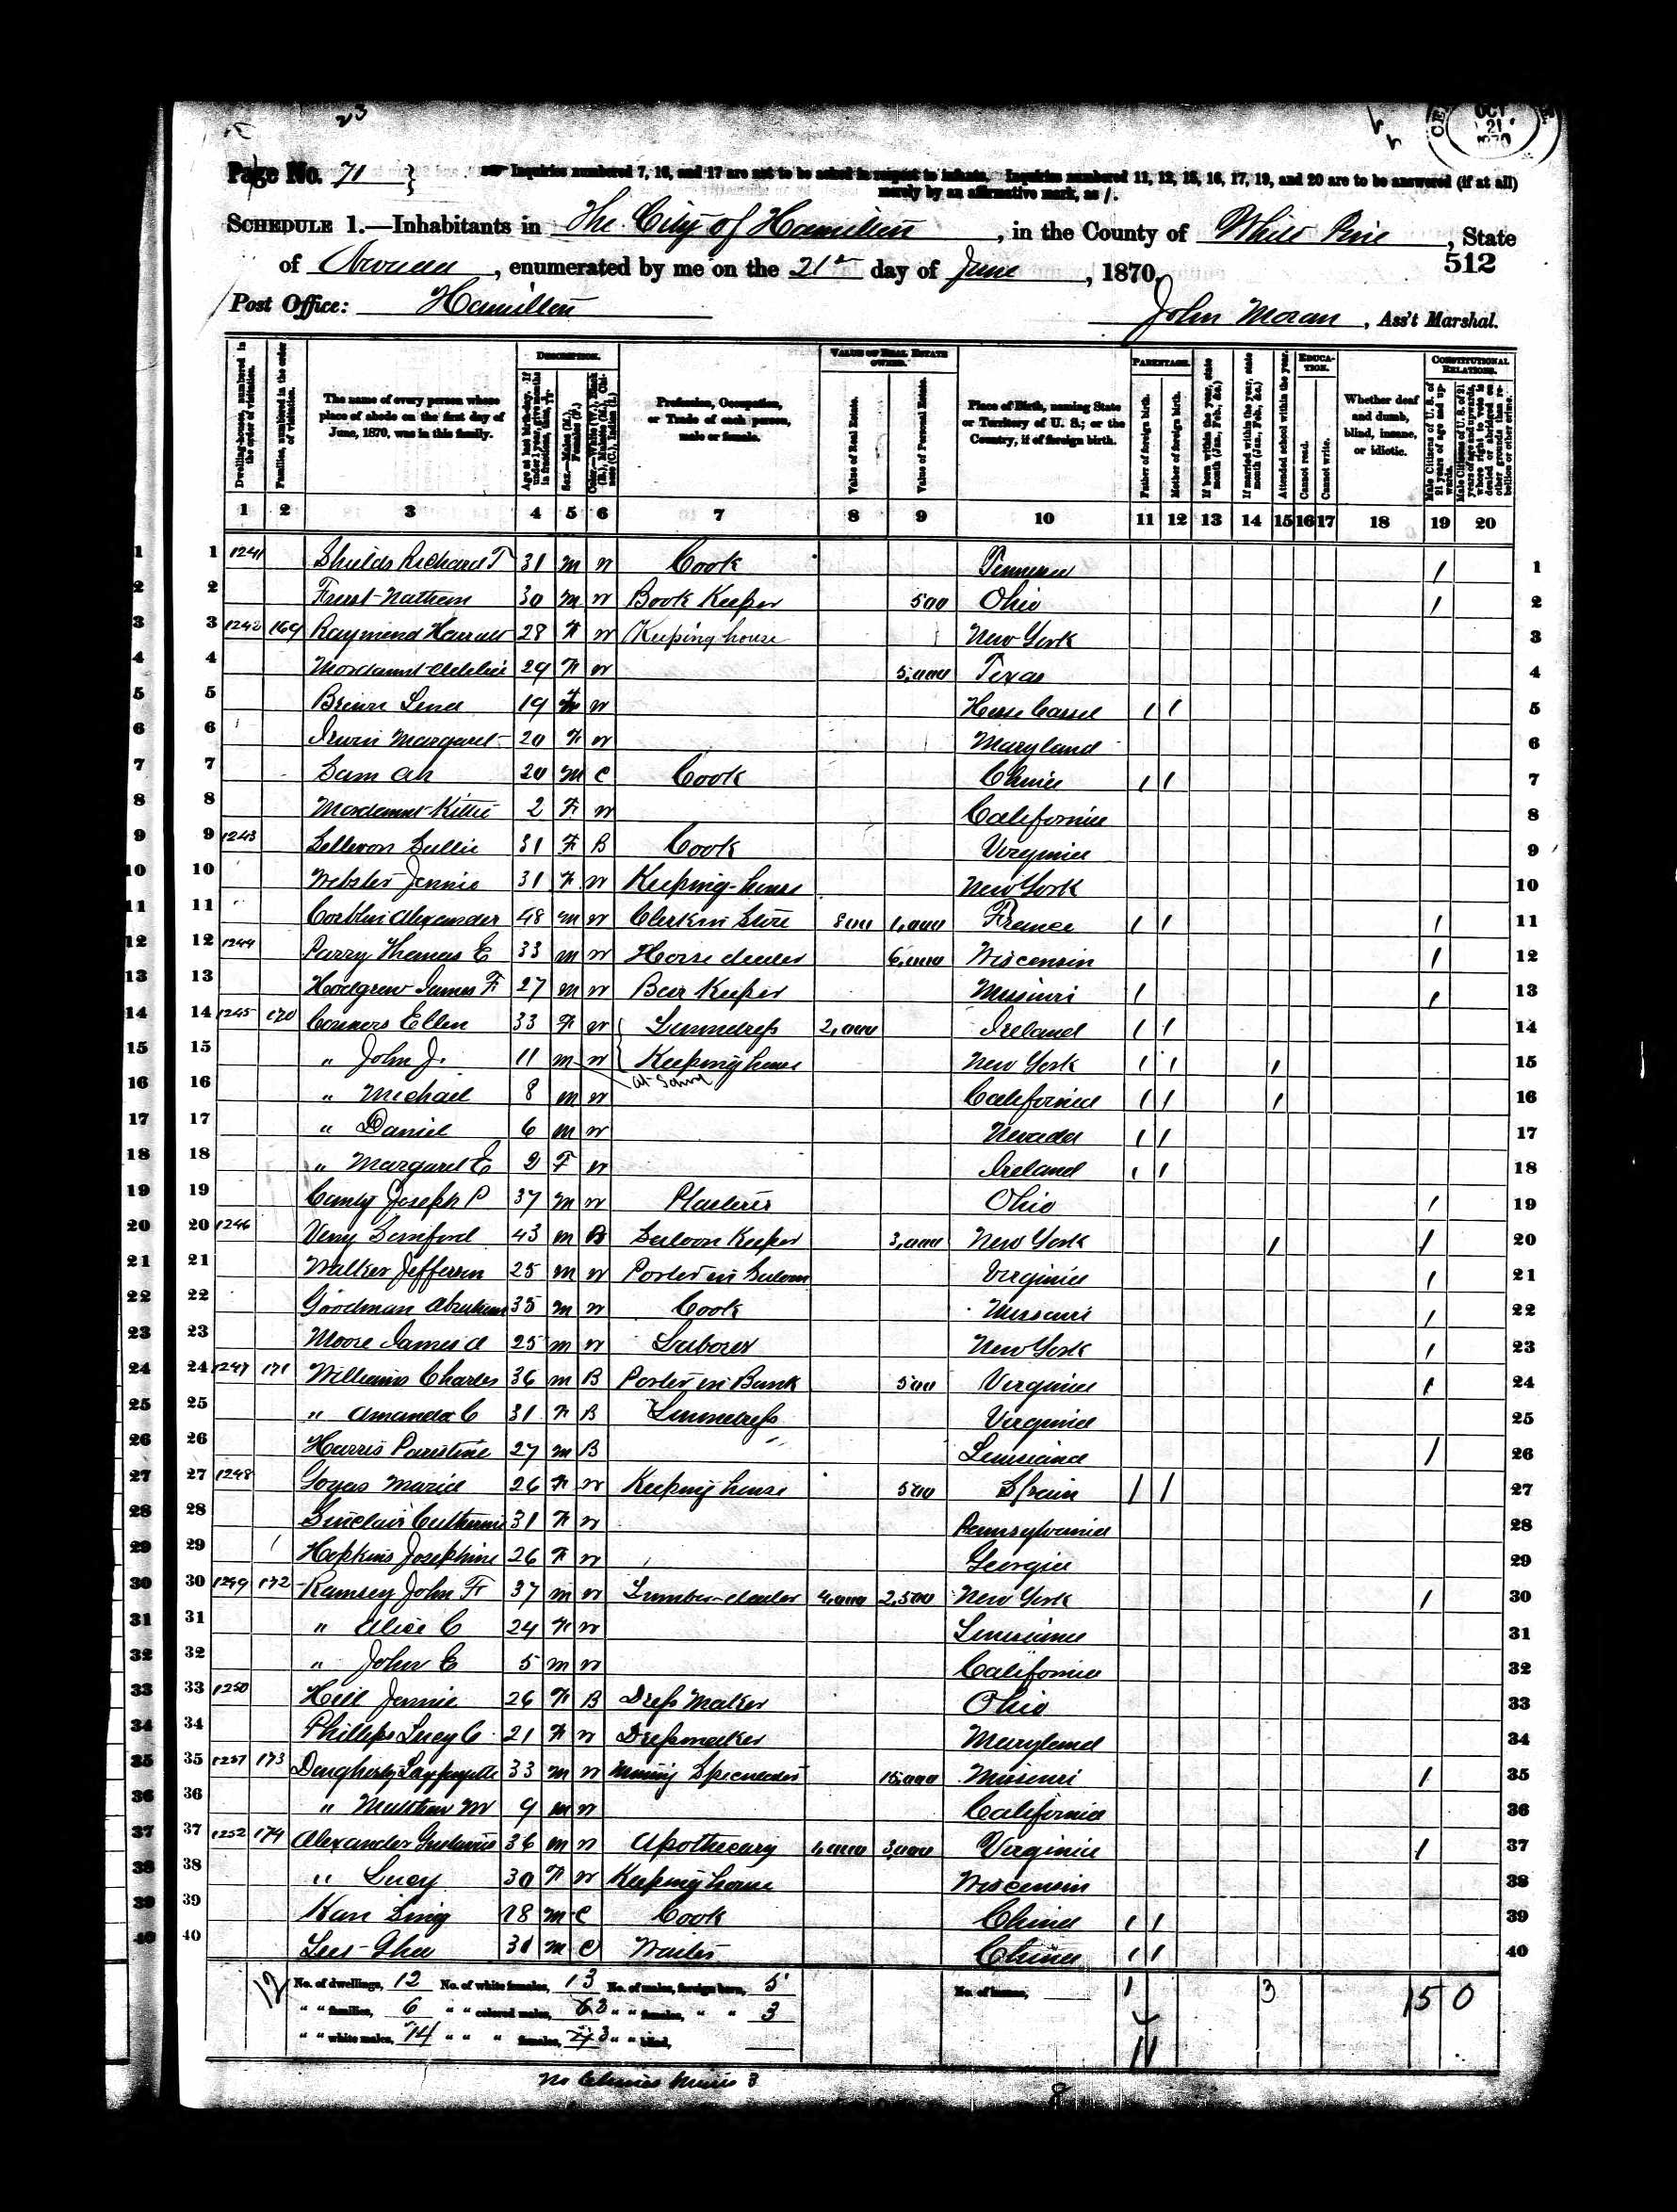 23
OCT 21 1870
Page No. 71
Inquiries numbered 7, 16, and 17 are not to be asked in respect to infants. Inquiries numbered 11, 12, 15, 16, 17, 19, and 20 are to be answered (if at all)
merely by an affirmative mark, as /.
SCHEDULE 1.—Inhabitants in The City of Hamilton, in the County of White Pine, State
of Nevada, enumerated by me on the 21st day of June, 1870.
512
Post Office: Hamilton
John Moran, Ass't Marshal.
Dwelling-houses, numbered in the order of visitation.
Families, numbered in the order of visitation.
The name of every person whose place of abode on the first day of June, 1870, was in this family.
DESCRIPTION.
Age at last birth-day. If under 1 year, give months in fractions, thus, 3/12.
Sex.—Males (M.), Females (F.)
Color.—White (W.), Black (B.), Mulatto (M.), Chinese (C.), Indian (I.)
Profession, Occupation, or Trade of each person, male or female.
VALUE OF REAL ESTATE OWNED.
Value of Real Estate.
Value of Personal Estate.
Place of Birth, naming State or Territory of U. S.; or the Country, if of foreign birth.
PARENTAGE.
Father of foreign birth.
Mother of foreign birth.
If born within the year, state month (Jan., Feb., &c.)
If married within the year, state month (Jan., Feb., &c.)
Attended school within the year.
EDUCATION.
Cannot read.
Cannot write.
Whether deaf and dumb, blind, insane, or idiotic.
CONSTITUTIONAL RELATIONS.
Male Citizens of U. S. of 21 years of age and upwards.
Male Citizens of U. S. of 21 years of age and upwards, whose right to vote is denied or abridged on other grounds than rebellion or other crime.
1 2 3 4 5 6 7 8 9 10 11 12 13 14 15 16 17 18 19 20
1 1241 Shields Richard T 31 m w Cook Tennessee / 1
2 Nathan 30 m w Book Keeper 500 Ohio / 2
3 1242 169 Raymond 28 F w Keeping house New York 3
4 29 F w 5,000 Texas 4
5 Lena 19 F w Hesse Cassel / / 5
6 Irwin Margaret 20 F w Maryland 6
7 Sam Ah 20 m C Cook China / / 7
8 Kittie 2 F w California 8
9 1243 Sallie 31 F B Cook Virginia 9
10 Webster Jennie 31 F w Keeping house New York 10
11 Alexander 48 m w Clerk in Store 800 1,000 France / / / 11
12 1244 Parry Thomas E 33 m w Horse dealer 6,000 Wisconsin / 12
13 James F 27 m w Bar Keeper Missouri / / 13
14 1245 170 Connors Ellen 33 F w Laundress 2,000 Ireland / / 14
15 " John J. 11 m w Keeping house New York / / / 15
at School
16 " Michael 8 m w California / / / 16
17 " Daniel 6 m w Nevada / / 17
18 " Margaret E 2 F w Ireland / / 18
19 Joseph P 37 m w Plasterer Ohio / 19
20 1246 Sanford 43 m B Saloon Keeper 3,000 New York / / 20
21 Walker Jefferson 25 m w Porter in Saloon Virginia / 21
22 Goodman Abraham 35 m w Cook Missouri / 22
23 Moore James A 25 m w Laborer New York / 23
24 1247 171 Williams Charles 36 m B Porter in Bank 500 Virginia / 24
25 " Amanda C 31 F B Laundress Virginia 25
26 Harris 27 m B " Louisiana / 26
27 1248 Maria 26 F w Keeping house 500 Spain / / 27
28 Sinclair Catherine 31 F w Pennsylvania 28
29 Hopkins Josephine 26 F w Georgia 29
30 1249 172 Ramsey John F 37 m w Lumber dealer 4,000 2,500 New York / 30
31 " Alice C 24 F w Louisiana 31
32 " John E 5 m w California 32
33 1250 Hill Jennie 26 F B Dress Maker Ohio 33
34 Phillips Lucy C 21 F w Dressmaker Maryland 34
35 1251 173 Daugherty Lafayette 33 m w Mining Speculator 15,000 Missouri / 35
36 " 9 m w California 36
37 1252 174 Alexander Gustavus 36 m w Apothecary 3,000 Virginia / 37
38 " Lucy 30 F w Keeping house Wisconsin 38
39 18 m C Cook China / / 39
40 31 m C Waiter China / / 40
12
No. of dwellings, 12 No. of white females, 13 No. of males, foreign born, 5 No. of insane, 3 15 0
" " families, 6 " " colored males, " " females, " " 3
" " white males, 14 " " " females, 3 " " blind,
No Chinese Males 3
8